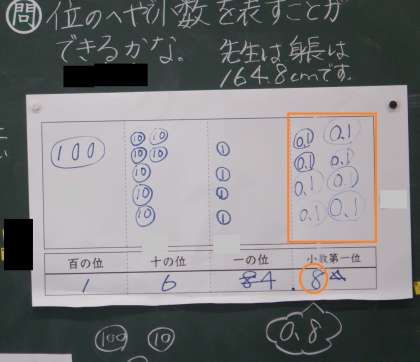 問 位のへやに小数を表すことが
できるかな。
先生は身長は
164.8cmです。
100
10 10
10 10
10
10
10
1
1
1
1
0.1 0.1
0.1 0.1
0.1 0.1
0.1 0.1
百の位 十の位 一の位 小数第一位
1 6 4 . 8
100 10 0.8